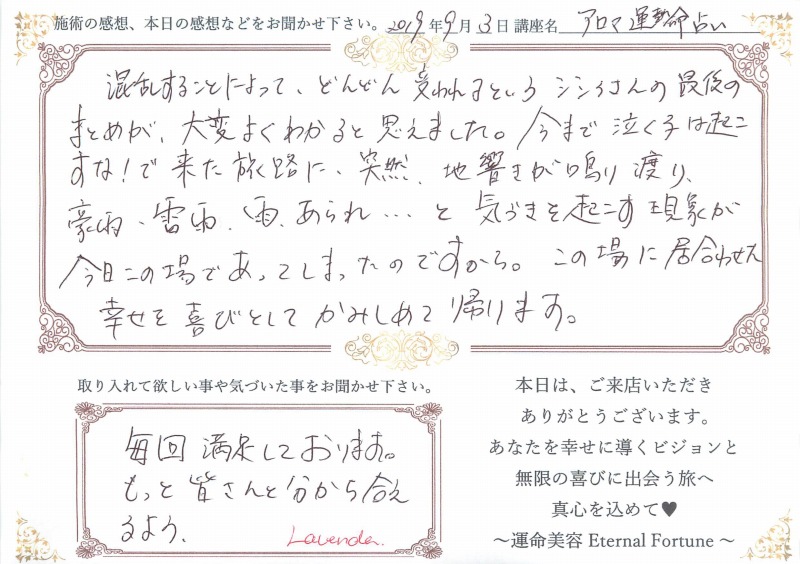 施術の感想、本日の感想などをお聞かせ下さい。2019年9月3日 講座名 アロマ運命占い
混乱することによって、どんどん変われるという シンイさんの最後の
まとめが、大変よくわかると思えました。今まで泣く子は起こ
すな!で来た旅路に、突然、地響きが鳴り渡り、
豪雨、雷雨、雨、あられ...と気づきを起こす現象が
今日この場であってしまったのですから。この場に居合わせた
幸せを喜びとしてかみしめて帰ります。
取り入れて欲しい事や気づいた事をお聞かせ下さい。
毎回満足しております。
もっと皆さんと分から合え
るよう、
Lavender.
本日は、ご来店いただき
ありがとうございます。
あなたを幸せに導くビジョンと
無限の喜びに出会う旅へ
真心を込めて♥
～運命美容 Eternal Fortune～